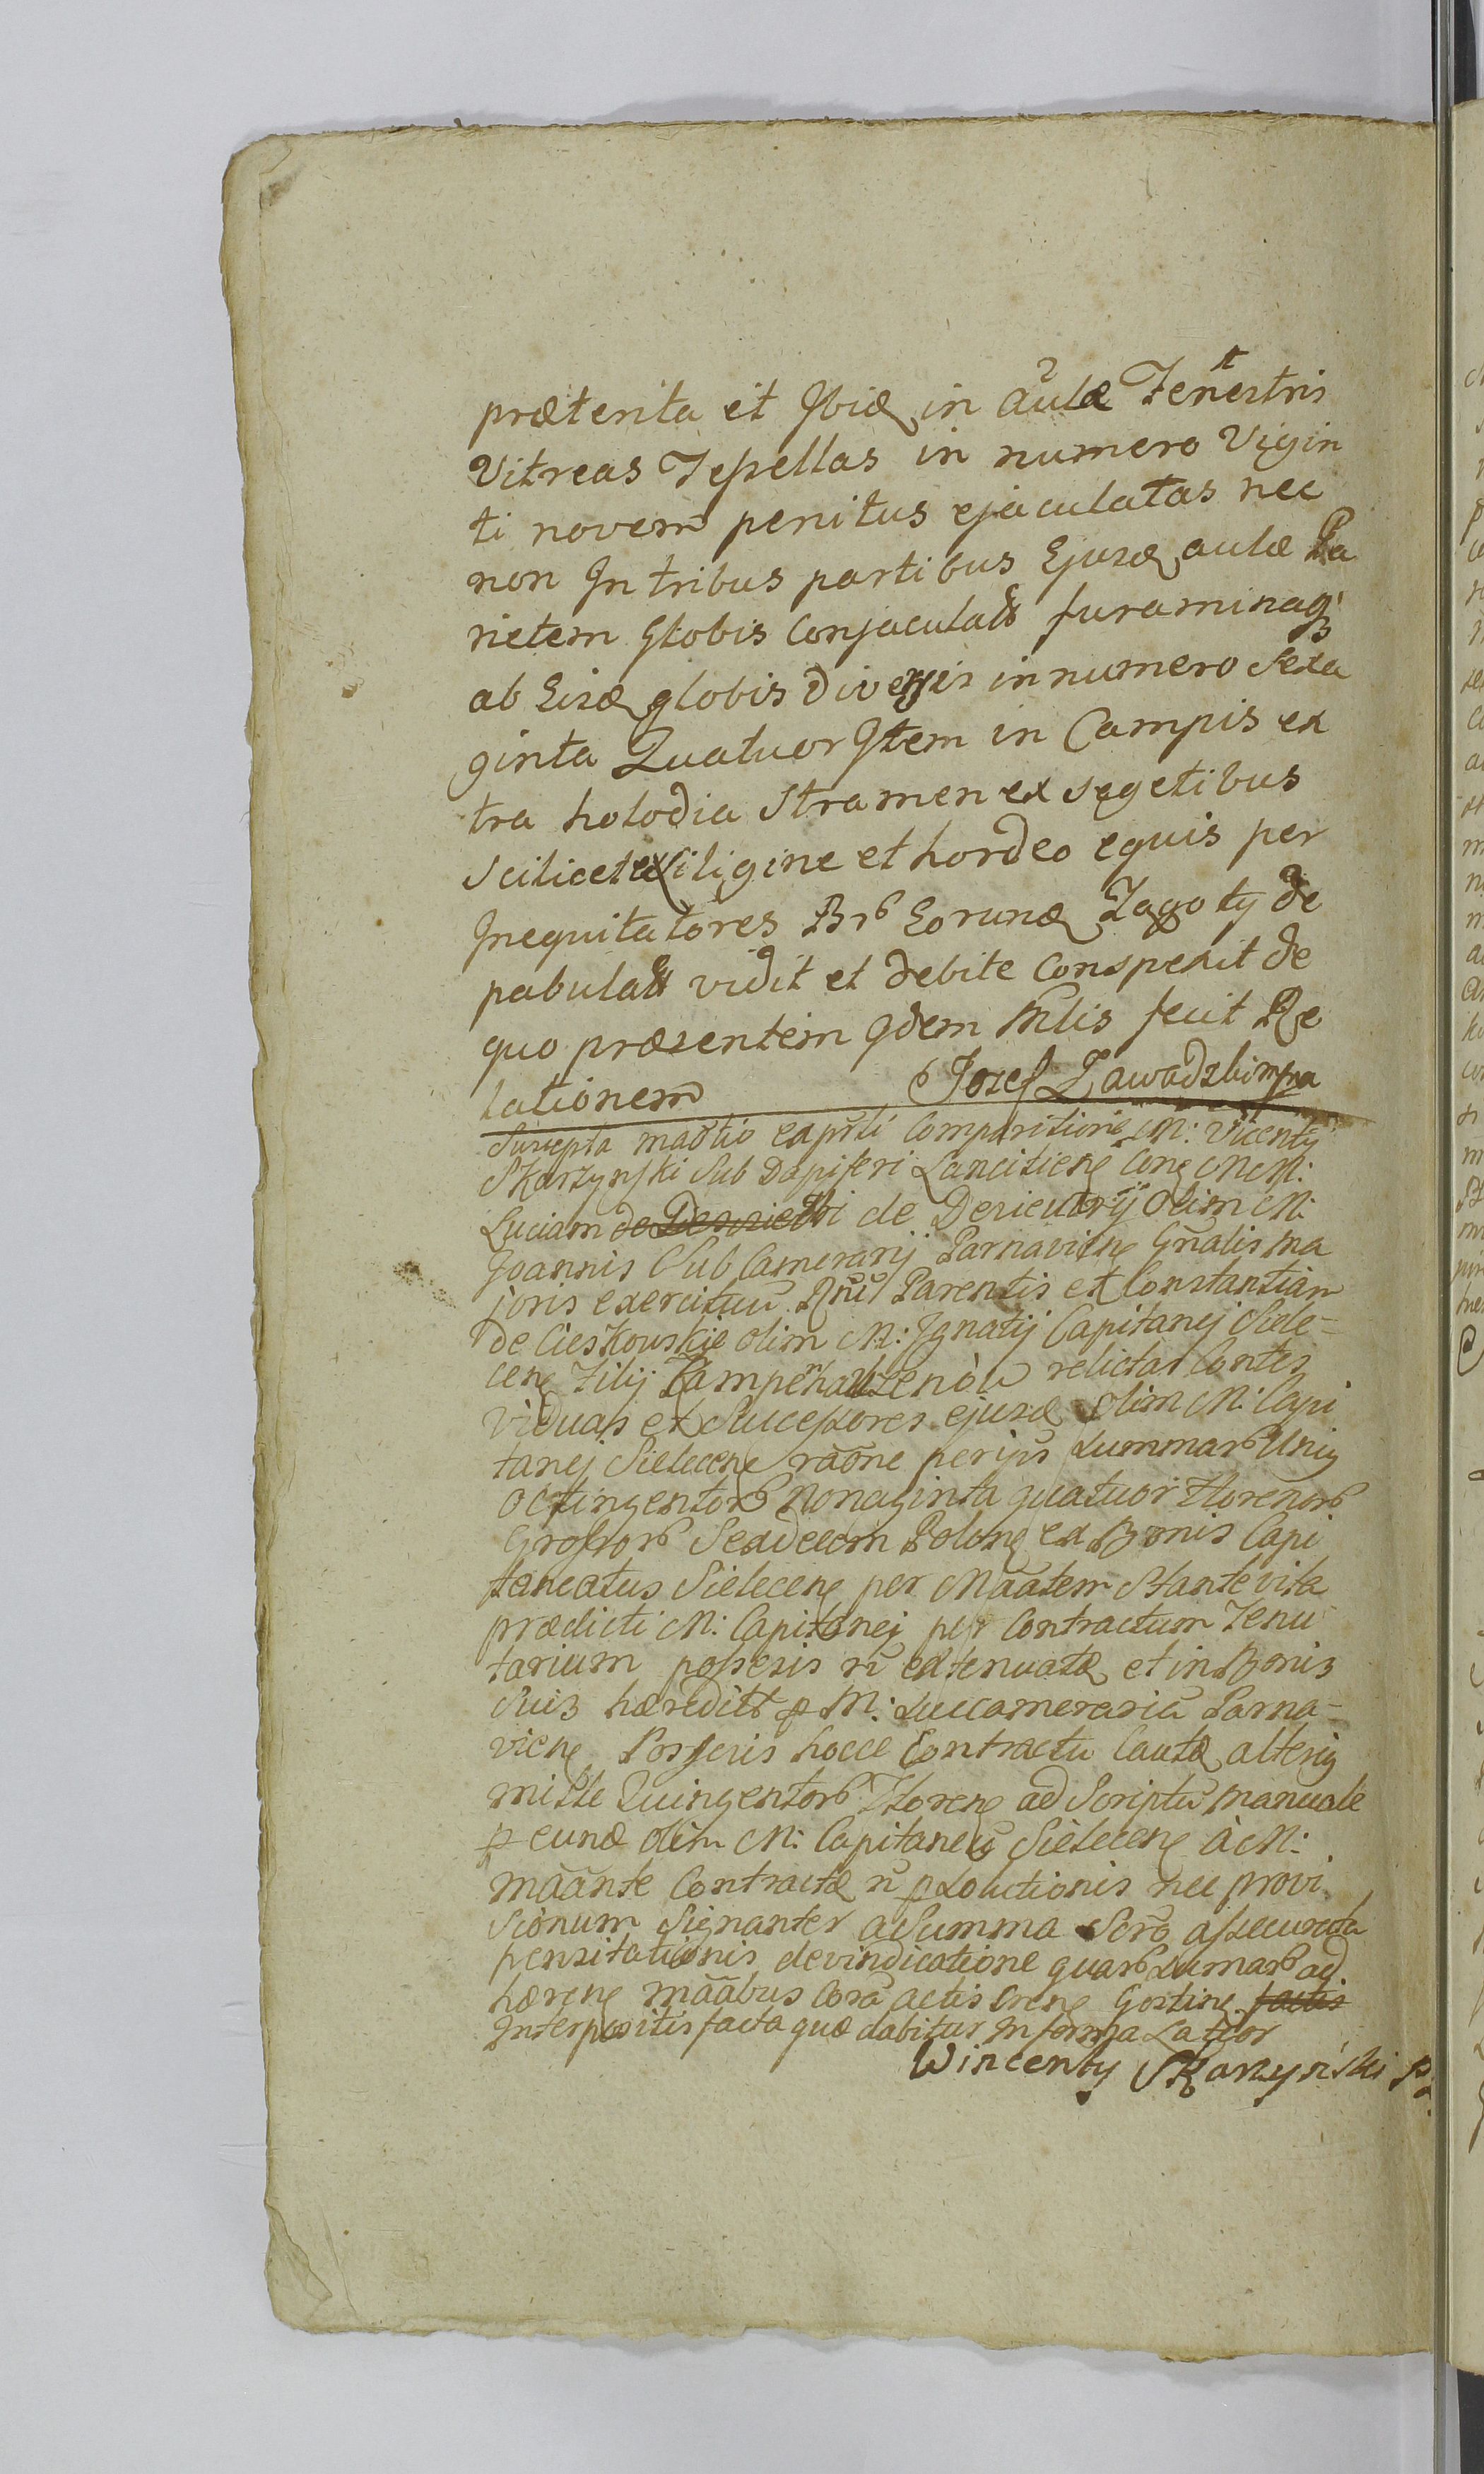 præterita et Ibid in aulæ Fenestris
Vitreas Tessellas in numero Vigin
ti novem penitus ejaculatas nec
non In tribus partibus Ejusd aulæ Pa
rietem Globis conjaculatt furaminaq
ab Eisd globis diversis in numero Sexa
ginta Quatuor Item in Campis ex
tra holodia Stramen ex segetibus
scilicet ex siligine et hordeo equis per
Inequitatores Eorund Zagoty de
pabulatt vidit et debite conspexit de
quo præsentem Idem Mlis fecit Re
lationem Jozef Zawadzki mpa
Suscepta Comparitione M: Vicenty
Skarzynski Sub Dapiferi Lancitien M:
Luciam de de olim M:
Joannis Sub Camerarij Parnavien Gnalis ma
joris exercituu Rni Parentis et Constantiam
de Cieskowskie olim M: Ignatij Capitanej Siele-
cen Filij relictas Contes
viduas et Successores ejusd olim M: Capi
tanej Sielecen raone summar
octingentor Nonaginta quatuor Florenor
Grossor Sexdecem Polon ex Bonis Capi
taneatus Sielecen per Maatem stante vita
prædicti M: Capitanej per Contractum Tenu
tarium possesis n extenuatæ et in Bonis
suis hæreditt p M: Succamerariu Parna-
vien hocce Contractu
mille Quingentor Floren ad Scriptu manuale
p eund olim M: Capitaneu Sielecen à M:
maante Contractæ n psolutionis nec provi
sionum signanter a Summa assecurata
pensitationis devindicatione quar sumar ad
hæren maabus Cora actis Gostin factis
Interpositis facta quæ dabitur In forma Latior
Wincenty Skarzyński